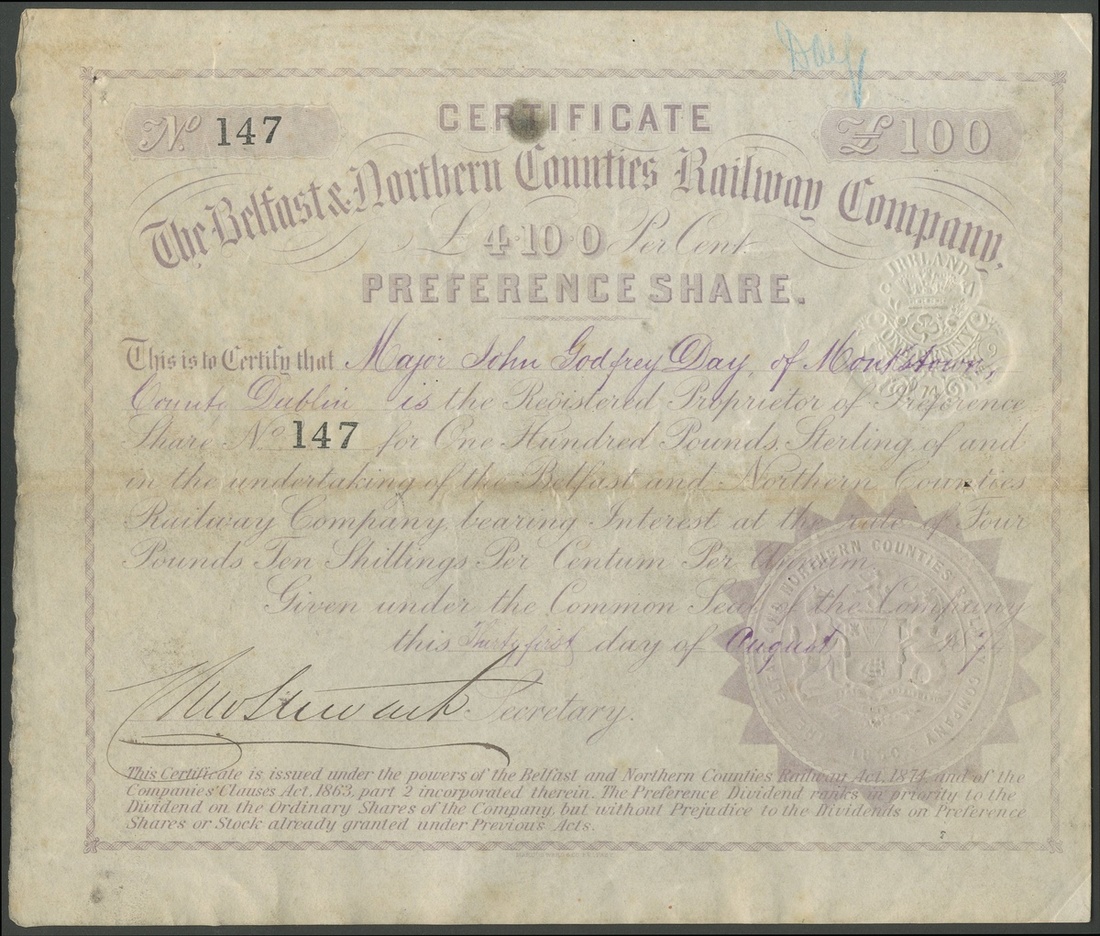 Day
CERTIFICATE
No. 147
£100
The Belfast & Northern Counties Railway Company,
£4.10.0 Per Cent.
PREFERENCE SHARE.
IRELAND
This is to Certify that Major John Godfrey Day, of Monkstown,
County Dublin is the Registered Proprietor of Preference
Share No. 147 for One Hundred Pounds Sterling of and
in the undertaking of the Belfast and Northern Counties
Railway Company, bearing Interest at the rate of Four
Pounds Ten Shillings Per Centum Per Annum.
Given under the Common Seal of the Company
this Thirty first day of August
Secretary.
NORTHERN COUNTIES RAILWAY COMPANY
1860
This Certificate is issued under the powers of the Belfast and Northern Counties Railway Act. 1874, and of the
Companies' Clauses Act. 1863, part 2 incorporated therein. The Preference Dividend ranks in priority to the
Dividend on the Ordinary Shares of the Company, but without Prejudice to the Dividends on Preference
Shares or Stock already granted under Previous Acts.